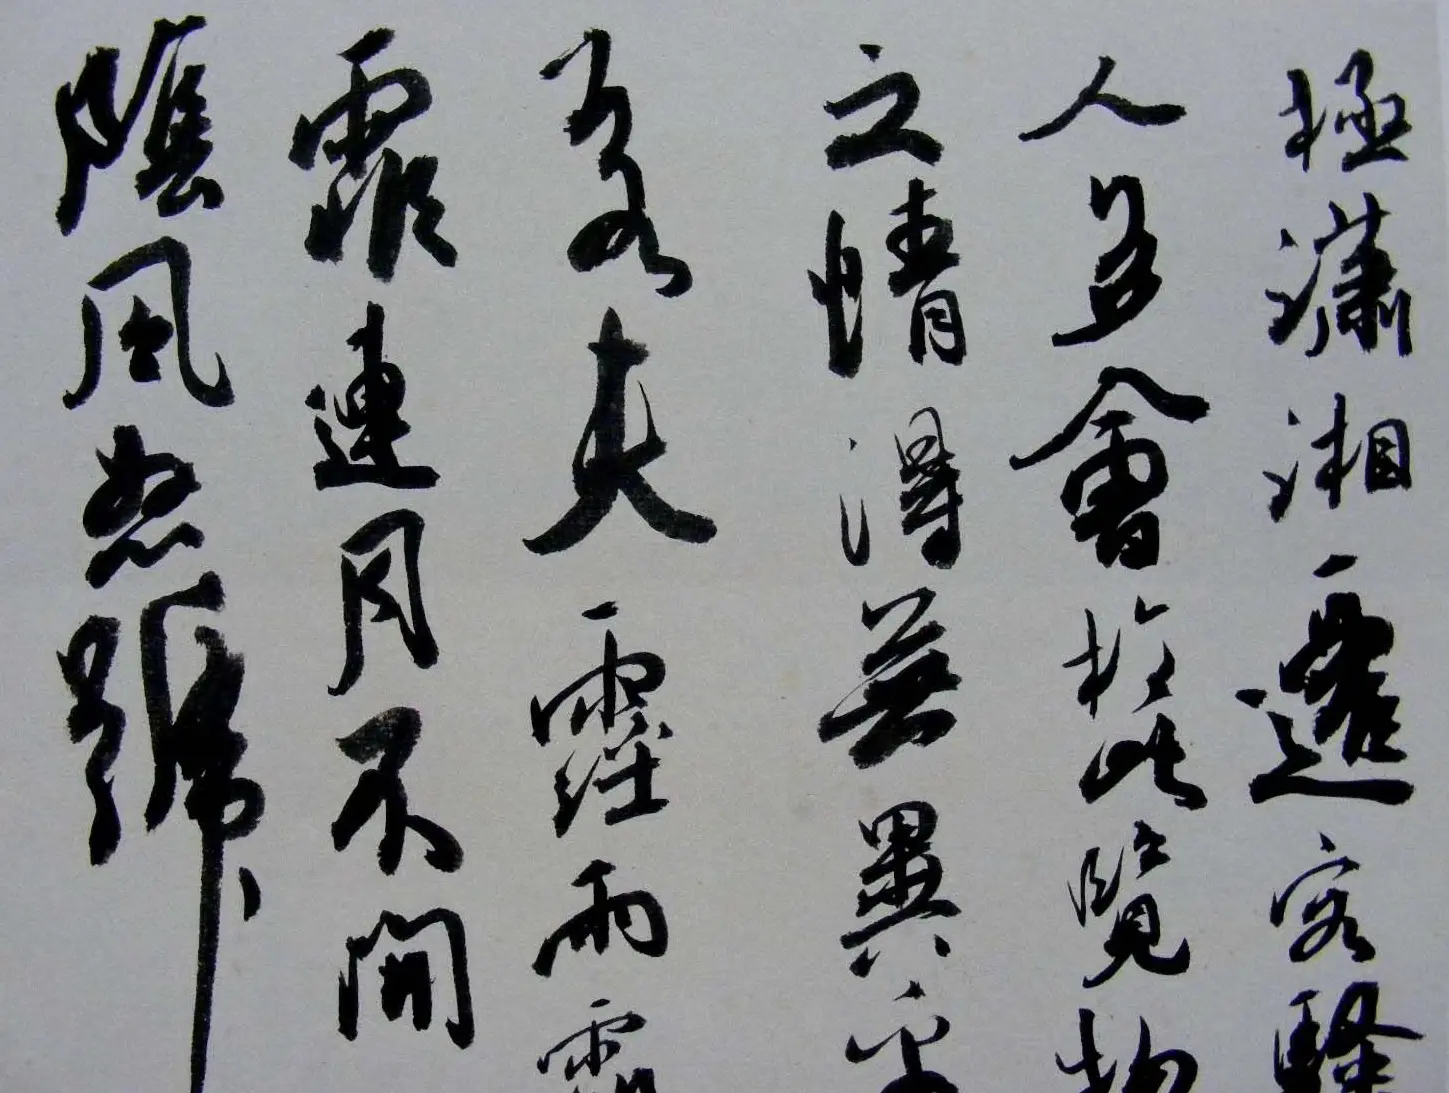 極瀟湘遷客騷
人多會於此覽物
之情得無異乎
若夫霪雨霏
霏連月不開
陰風怒號